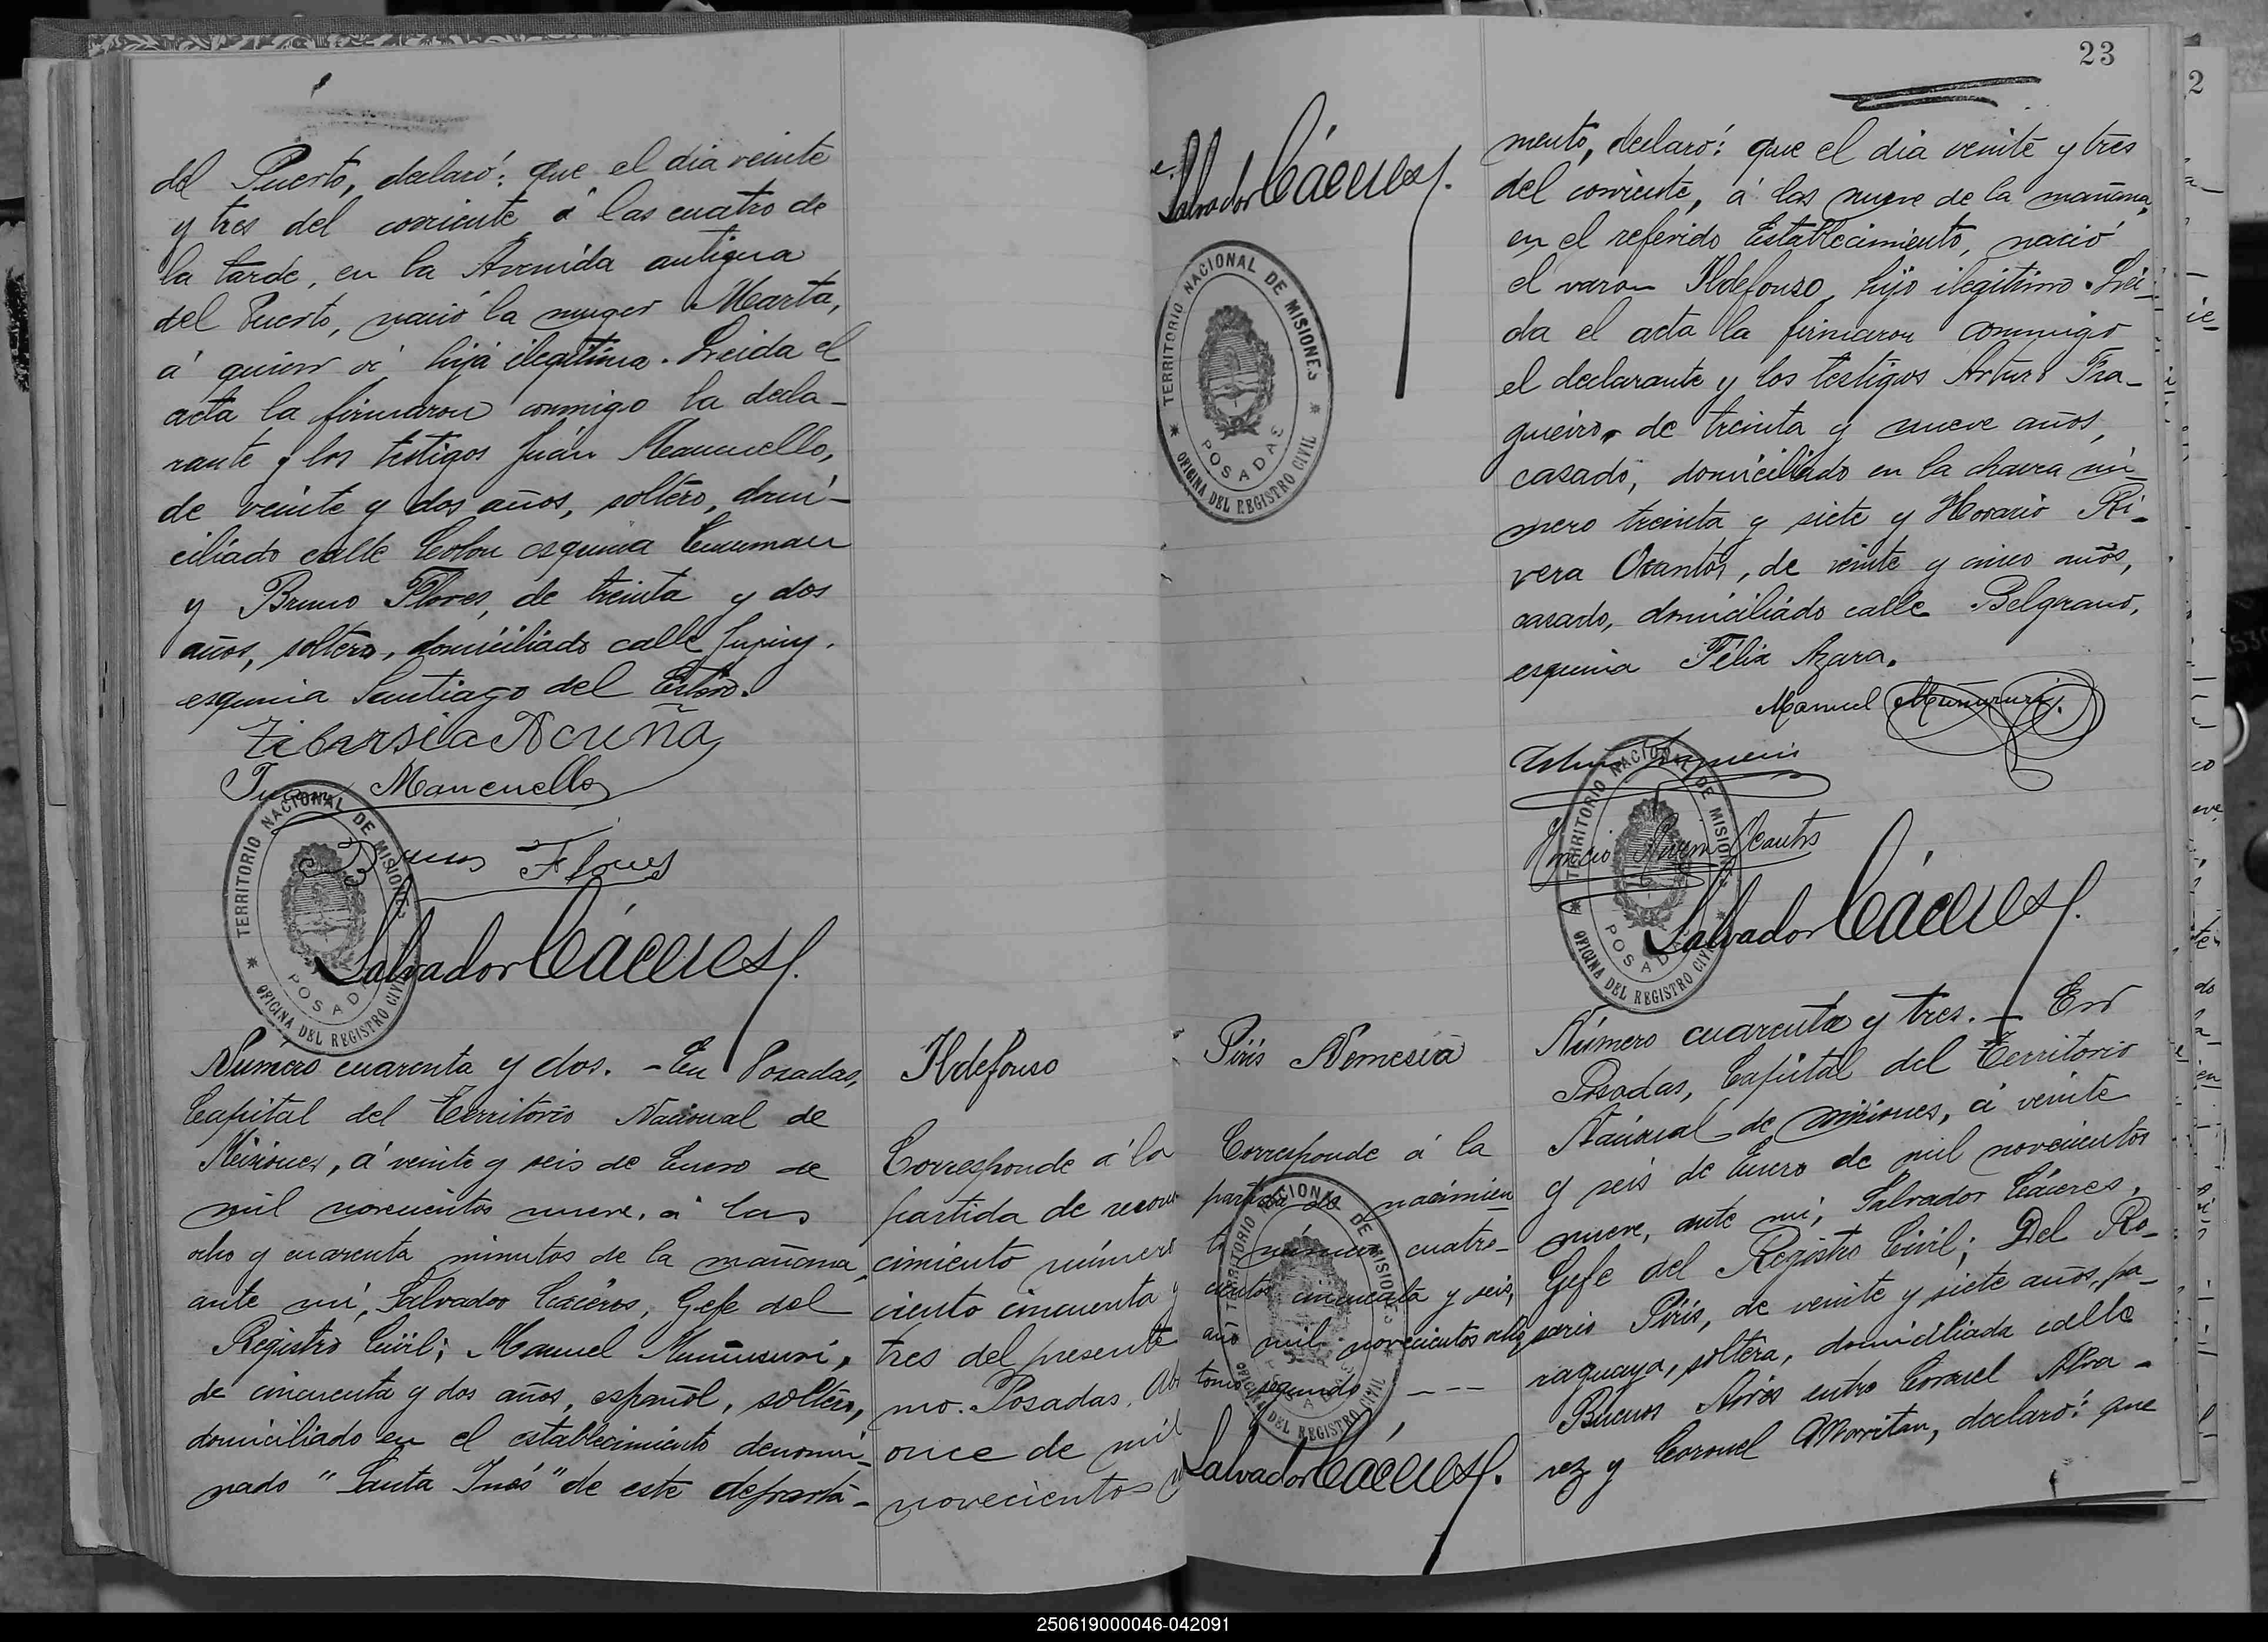 del Puerto, declaró: que el dia veinte
y tres del corriente á las cuatro de
la tarde, en la Avenida antigua
del Puerto, nació la muger Marta,
á quien vi hija ilegitima. Leida el
acta la firmaron conmigo la decla-
rante y los testigos Juán Mancuello,
de veinte y dos años, soltero, domi-
ciliado calle Colon esquina Tucuman
y Bruno Flores, de treinta y dos
años, soltero, domiciliado calle Jujuy.
esquina Santiago del Estero.
Tibursia Acuña
Juan Mancuello
Bruno Flores
TERRITORIO NACIONAL DE MISIONES
POSADAS
OFICINA DEL REGISTRO CIVIL
Salvador Cáceres
Número cuarenta y dos. - En Posadas,
Capital del Territorio Nacional de
Misiones, á veinte y seis de Enero de
mil novecientos nueve, á las
ocho y cuarenta minutos de la mañana,
ante mi, Salvador Cáceres, Gefe del
Registro Civil; Manuel
de cincuenta y dos años, español, soltero,
domiciliado en el establecimiento denomi-
nado "Santa Inés" de este departa-
Ildefonso
Corresponde á la
partida de recono
cimiento número
ciento cincuenta y
tres del presente
mo. Posadas,
once de mil
novecientos
23
Salvador Cáceres
TERRITORIO NACIONAL DE MISIONES
POSADAS
OFICINA DEL REGISTRO CIVIL
Piris Nemesia
Corresponde á la
partida de nacimien
to número cuatro-
cientos cincuenta y seis,
año mil novecientos ocho
tomo segundo ---
TERRITORIO NACIONAL DE MISIONES
OFICINA DEL REGISTRO CIVIL
Salvador Cáceres
mento, declaró: que el dia veinte y tres
del corriente, á las nueve de la mañana,
en el referido Establecimiento, nació
el varon Ildefonso, hijo ilegitimo. Lei-
da el acta la firmaron conmigo
el declarante y los testigos Arturo Fra-
gueiro, de treinta y nueve años,
casado, domiciliado en la chacra nú-
mero treinta y siete y Horacio Ri-
vera Ocantos, de veinte y cinco años,
casado, domiciliado calle Belgrano,
esquina Félix Azara.
Manuel
Arturo Fragueiro
Horacio Rivera Ocantos
TERRITORIO NACIONAL DE MISIONES
POSADAS
OFICINA DEL REGISTRO CIVIL
Salvador Cáceres
Número cuarenta y tres. - En
Posadas, Capital del Territorio
Nacional de Misiones, á veinte
y seis de Enero de mil novecientos
nueve, ante mi, Salvador Cáceres,
Gefe del Registro Civil; Del Ro-
sario Piris, de veinte y siete años, pa-
raguaya, soltera, domiciliada calle
Buenos Aires entre Coronel Alva-
rez y Coronel Morritan, declaró: que
250619000046-042091